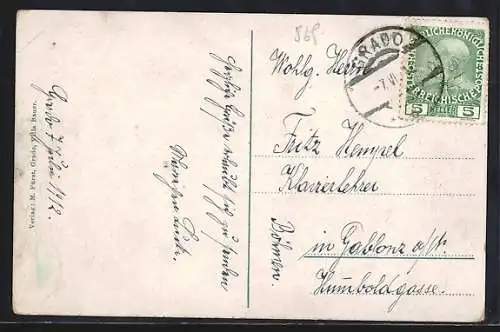 569.
Verlag: M. Fürst, Grado, Villa Bauer.
Grado 7 Juli 1912.
Herzliche Grüße erlaubt sich zu senden
GRADO
-7.VI
KAIS. KÖNIGL.
ÖSTERREICHISCHE POST
5 HELLER 5
Wohlg. Herrn
Fritz Hempel
Klavierlehrer
in Gablonz a/N.
Humboldgasse.
Böhmen.